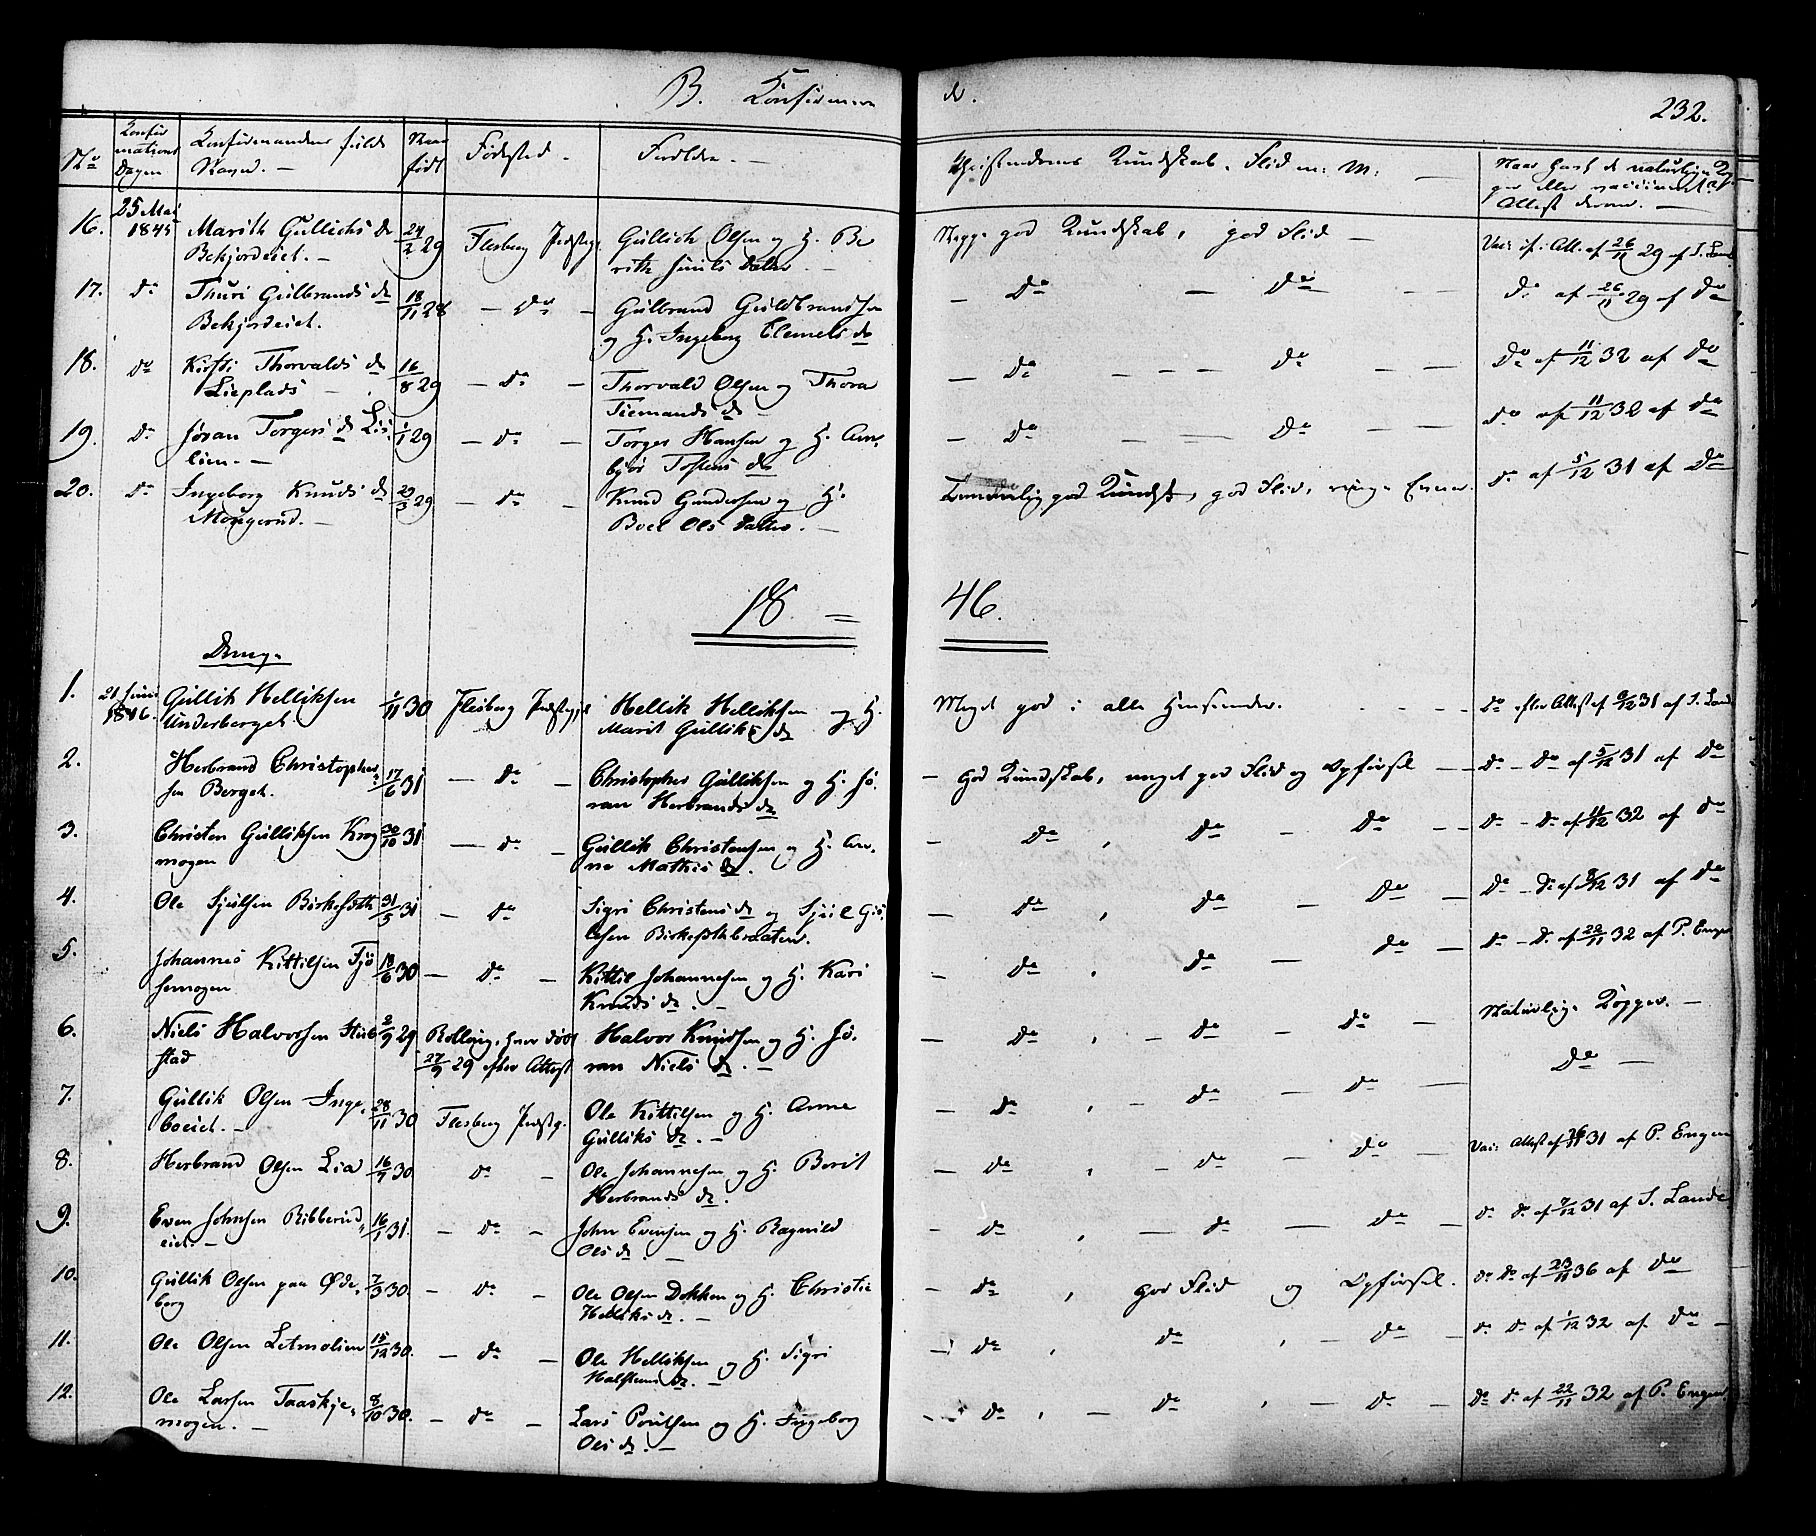 B. Konfirmere
de.
232.
No
Konfir
mations
Dagen
Konfirmandens fulde
Navn. —
Naar
født
Fødested. —
Forældre. —
Christendoms Kundskab, Flid m: M: —
Naar havt de naturlige Kop
per eller vaccineret
Attest derom. —
16.
25 Mai
1845
Marith Gullichs d
Bekjordeiet. —
24/2 29
Flesberg Præstegj.
Gullich Olsen og H. Be
rith Juuls Datter. —
god Kundskab, god Flid —
Vac: if. Att. af 26/11 29 af S. Lande
17. do
Thuri Gulbrands d
Bekjordeiet.
18/11 28
— do —
Gulbrand Guldbrandsen
og H. Ingeborg Clemets d
— do — do — —
do af 26/11 29 af do
18. do
Kirsti Thorvalds d
Lieplads —
16/8 29
— do —
Thorvald Olsen og Thora
Tiemands d —
— do — — — do — —
do af 11/12 32 af do
19. do
Jøran Torgers d Lis
lien. —
1/1 29
— do —
Torger Hansen og H. An
bjør Tostens d
— do — — do — —
do af 11/12 32 af do
20. do
Ingeborg Knuds d
Mougerud. —
29/3 29
— do —
Knud Gundersen og H.
Boel Ols Datter. —
Temmelig god Kundsk, god Flid, ringe Evner.
do af 5/12 31 af do
18 = 46.
Drenge
1.
21 Juni
1846.
Gullik Helliksen
Underberget
1/11 30
Flesberg Præstegjel
Hellik Helliksen og H.
Marit Gulliks d
Meget god i alle Henseender. - - - -
do efter Attest af 6/12 31 af S. Lande
2.
Herbrand Christopher
sen Berget.
17/6 31
— do —
Christopher Gulliksen og H. Jø
ran Herbrands d
— god Kundskab, meget god Flid og Opførsel — —
do - do af 5/12 31 af do
3.
Christen Gulliksen Krog
mogen
30/10 31
— do —
Gullik Christensen og H. An
ne Mathis d.
— do , do — do — —
do - do af 11/12 32 af do
4.
Ole Sjulsen Birkeseth
31/5 31
— do —
Sigri Christens d og Sjul Gis
lesen Birkesethbraaten.
— do , do — do —
do - do af 8/12 31 af do
5.
Johannes Kittilsen Tjø
semogen
18/6 30
— do —
Kittil Johannesen og H. Kari
Knuds d. —
— do , do — do —
do - do af 22/11 32 af P. Engen
6.
Niels Halvorsen Stub
stad
2/9 29
Rolloug, hvor døbt
27/9 29 efter Attest
Halvor Knudsen og H. Jø
ran Niels d. —
— do , - do — do —
Naturlige Kopper. —
7.
Gullik Olsen Inge
boeiet. —
28/11 30
Flesberg Præstg.
Ole Kittilsen og H. Anne
Gulliks d. —
— do , - do — do —
do —
8.
Herbrand Olsen Lia
16/7 30
do —
Ole Johannesen og H. Berit
Herbrands d.
— do , - do — do —
Vac: Attest af 26/11 31 af P. Engen
9.
Even Johnsen Ribberud
eiet. —
16/1 31.
— do —
John Evensen og H. Ragnild
Ols d —
— do , — do — do —
do do af 7/12 31 af S. Lande
10.
Gullik Olsen paa Øde
berg
7/3 30.
— do —
Ole Olsen Dokken og H. Christie
Helliks d. —
— do , god Flid og Opførsel.
do do af 23/11 36 af do
11.
Ole Olsen Letmolien
15/12 30.
— do —
Ole Helliksen og H. Sigri
Halstens d. —
— do , do , — do —
do do af 1/12 32 af do —
12.
Ole Larsen Taaskje
mogen. —
8/10 30.
— do —
Lars Povelsen og H. Ingeborg
Ols d. —
— do , — do , — do —
do do af 22/11 32 af P. Engen.